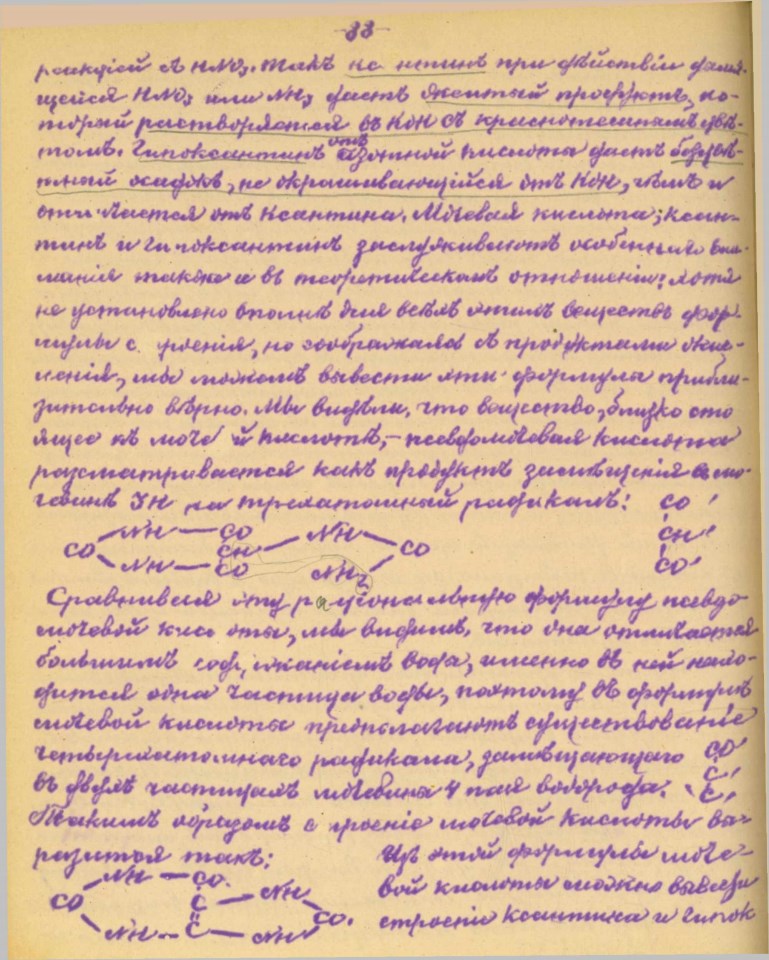 -88-
реакціей съ HNO₃. Такъ ксантинъ при дѣйствіи дымя-
щейся HNO₃ или NH₃ даетъ желтый продуктъ, ко-
торый растворяется въ KOH съ краснотеснымъ цвѣ-
томъ. Гипоксантинъ отъ азотной кислоты даетъ безцвѣ-
тный осадокъ, не окрашивающійся отъ KOH, чѣмъ и
отличается отъ Ксантина. Мочевая кислота, ксан-
тинъ и гипоксантинъ заслуживаютъ особеннаго вни-
манія также и въ теоретическомъ отношеніи: хотя
не установлено вполнѣ для всѣхъ этихъ веществъ фор-
мулы с роенія, но соображаясь съ продуктами окис-
ленія, мы можемъ вывести эти формулы прибли-
зительно вѣрно. Мы видѣли, что вещество, близко сто
ящее къ моче й кислотѣ, – псевдомочевая кислота
разсматривается какъ продуктъ замѣщенія въ мо-
чевинѣ 3H на трехатомный радикалъ: CO'
NH — CO NH CH'
CO CH CO CO'
NH — CO NH₂
Сравнивая эту раціональную формулу псевдо
мочевой кис оты, мы видимъ, что она отличается
большимъ содержаніемъ воды, именно въ ней нахо-
дится одна частица воды, поэтому въ формулѣ
мочевой кислоты предполагаютъ существованіе
четырехатомнаго радикала, замѣщающаго CO'
въ двухъ частицахъ мочевины 4 пая водорода. C'
Такимъ образомъ с троеніе мочевой кислоты вы- C'
разится такъ: Изъ этой формулы моче-
NH — CO
CO C — NH вой кислоты можно вывести
C — NH CO. строеніе Ксантина и Гипок
NH — C